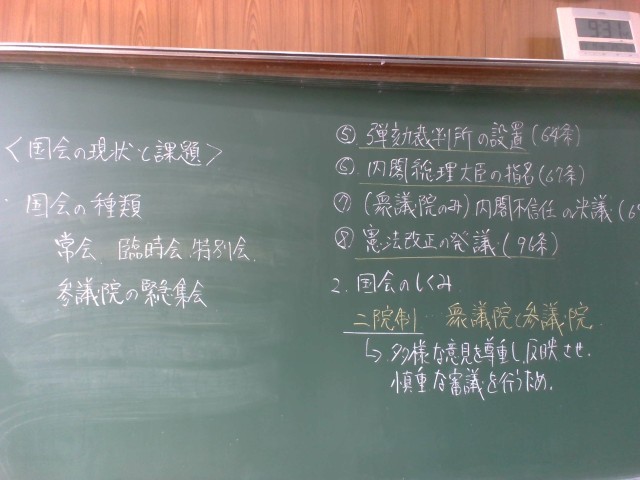 〈国会の現状と課題〉
・国会の種類
常会、臨時会、特別会、
参議院の緊急集会
⑤ 弾劾裁判所の設置(64条)
⑥ 内閣総理大臣の指名(67条)
⑦ (衆議院のみ)内閣不信任の決議(6
⑧ 憲法改正の発議(96条)
2. 国会のしくみ
二院制…衆議院と参議院
↳ 多様な意見を尊重し、反映させ、
慎重な審議を行うため。